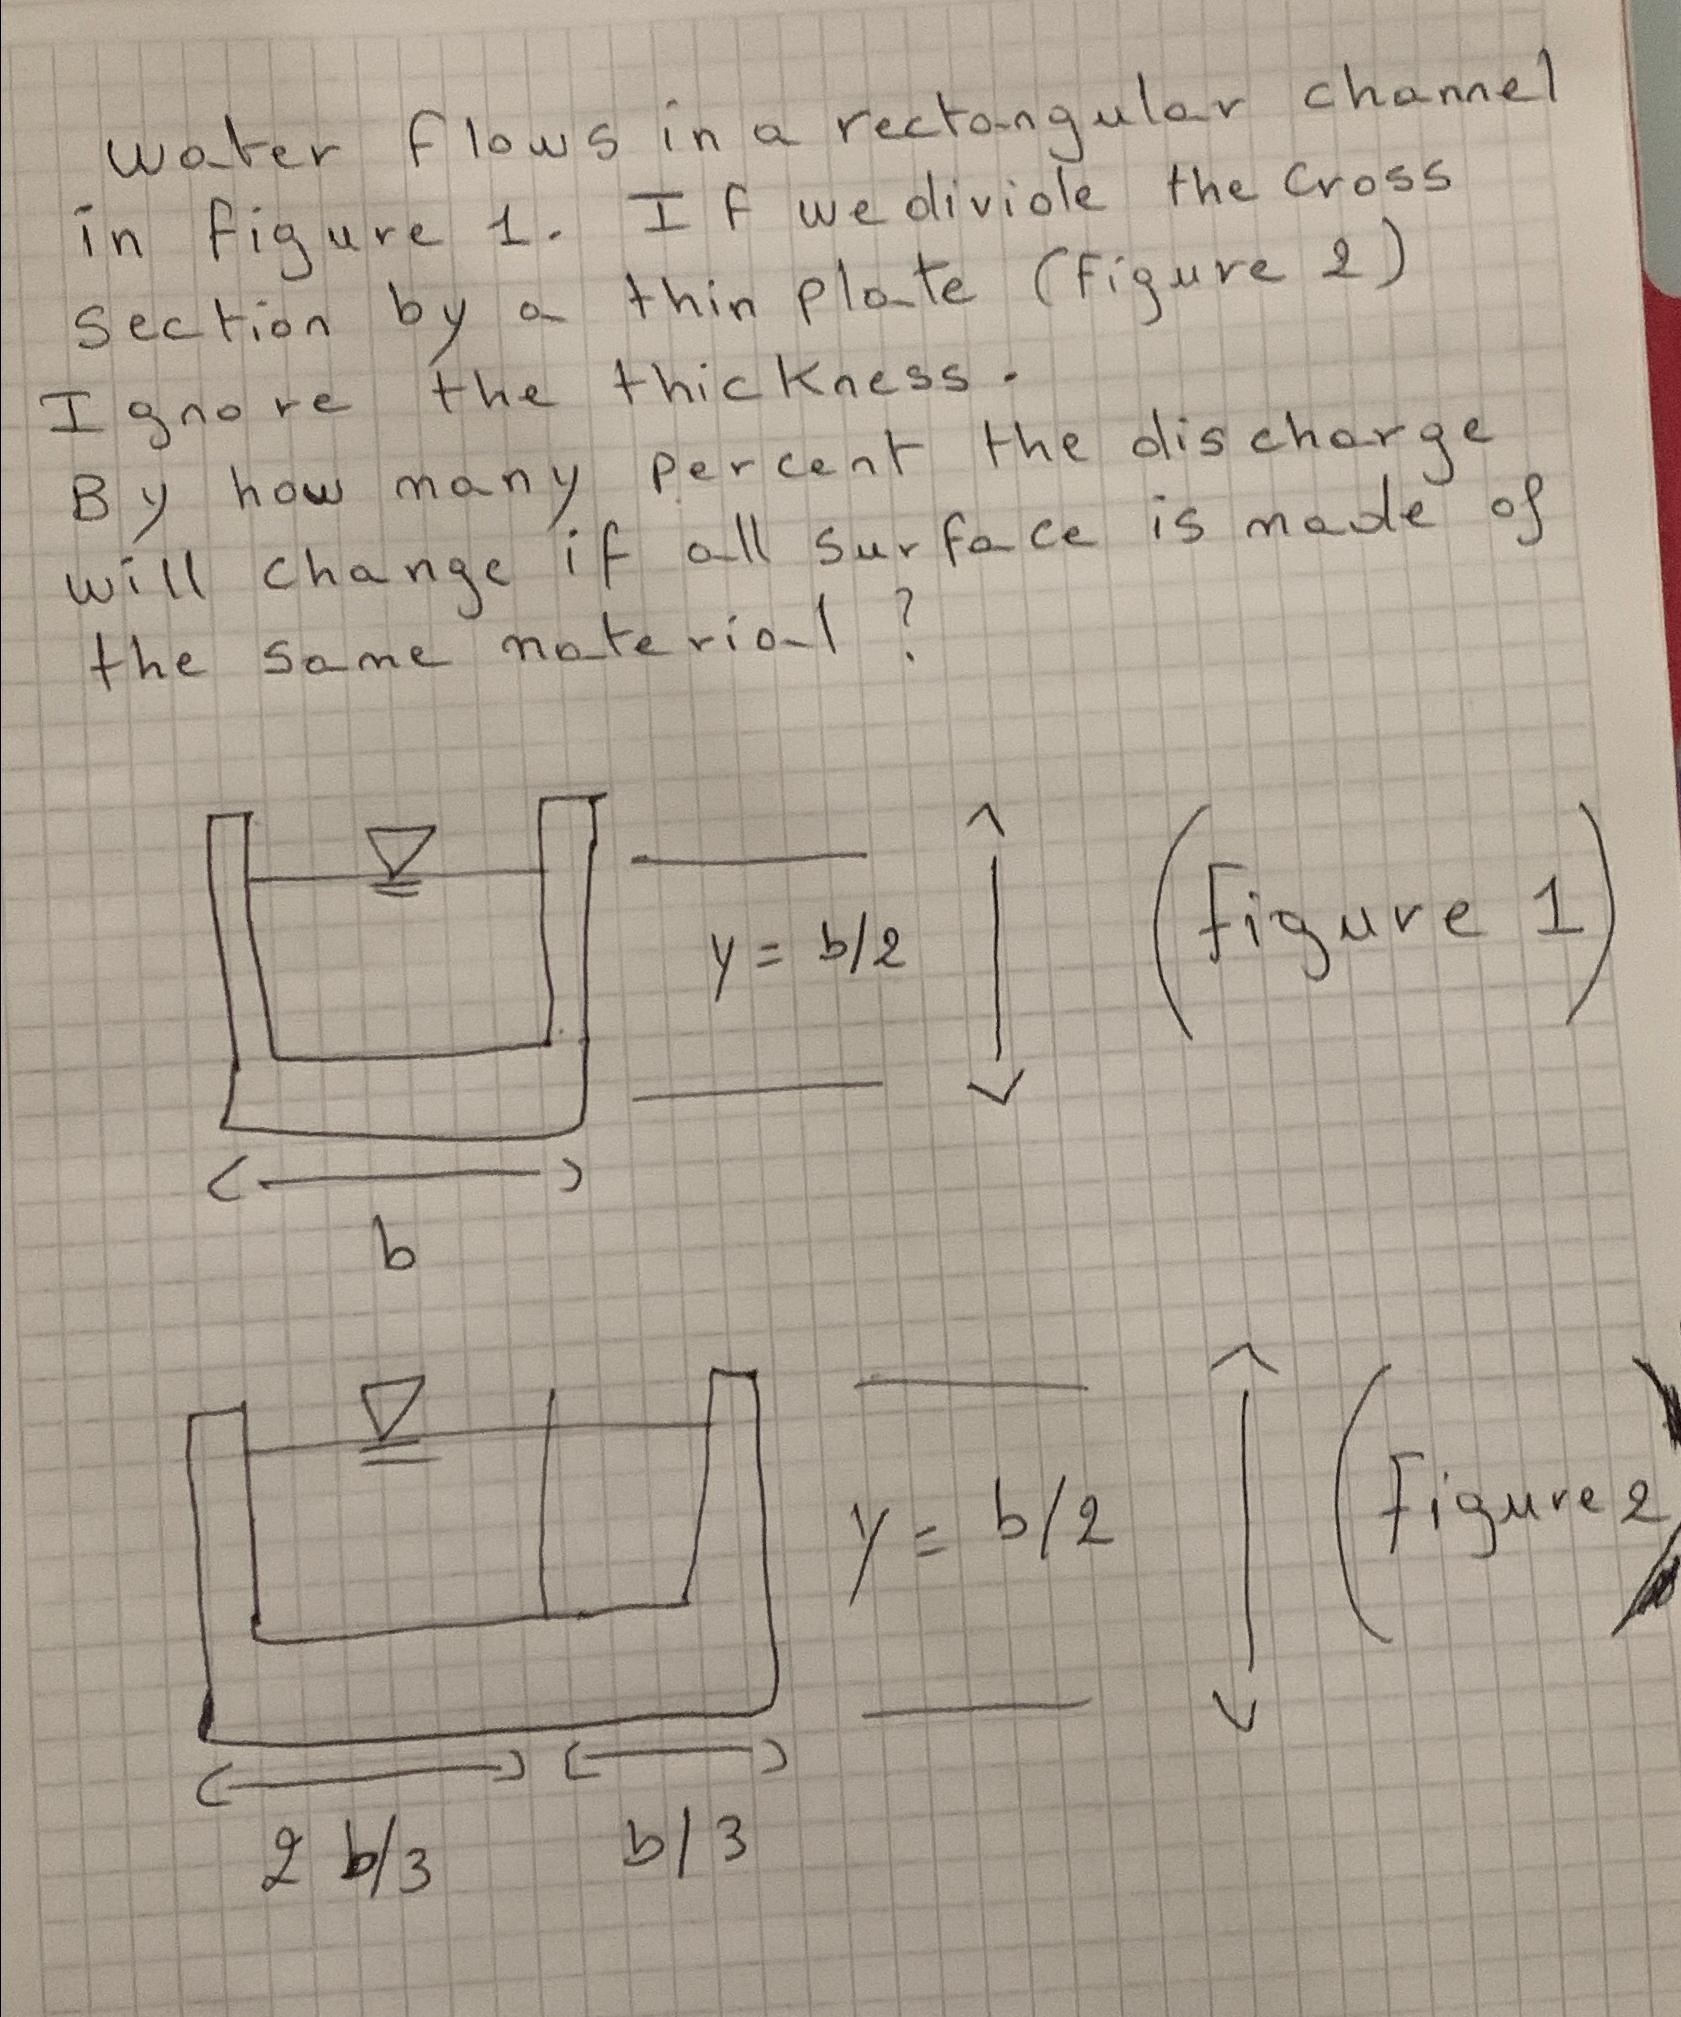 water flows in a rectangular channel
in figure 1. If we divide the cross
section by a thin plate (Figure 2)
Ignore the thickness.
By how many percent the discharge
will change if all surface is made of
the same material ?
y = b/2
(Figure 1)
b
y = b/2
(Figure 2)
2 b/3
b/3